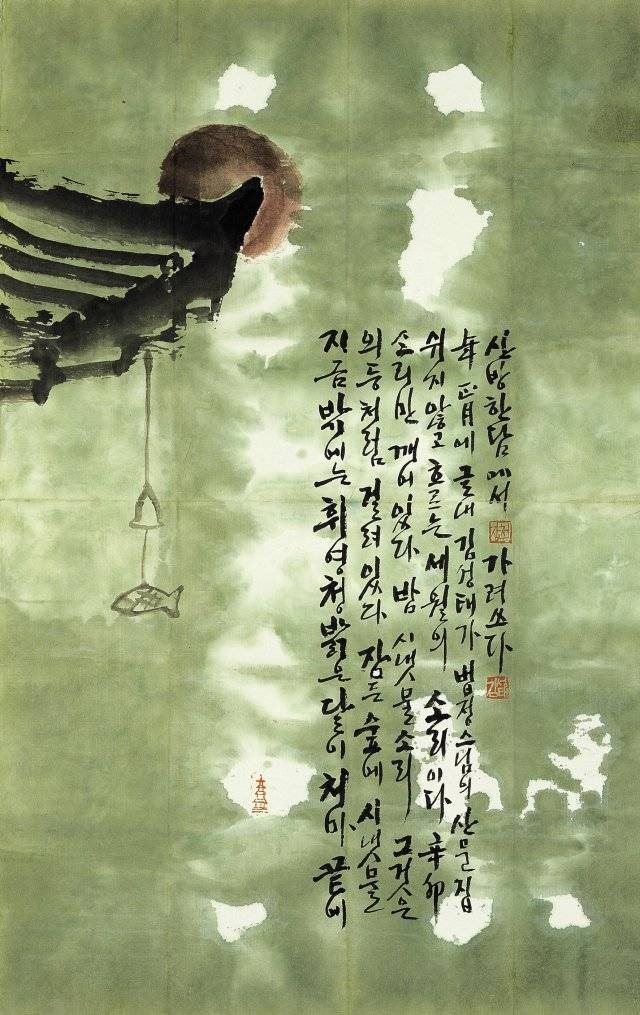 지금 밖에는 휘영청 밝은 달이 처마 끝에
외등처럼 걸려 있다 잠든 숲에 시냇물
소리만 깨어 있다 밤 시냇물소리 그것은
쉬지 않고 흐르는 세월의 소리이다 辛卯
年 正月에 글내 김성태가 법정스님의 산문집
산방한담에서 가려쓰다